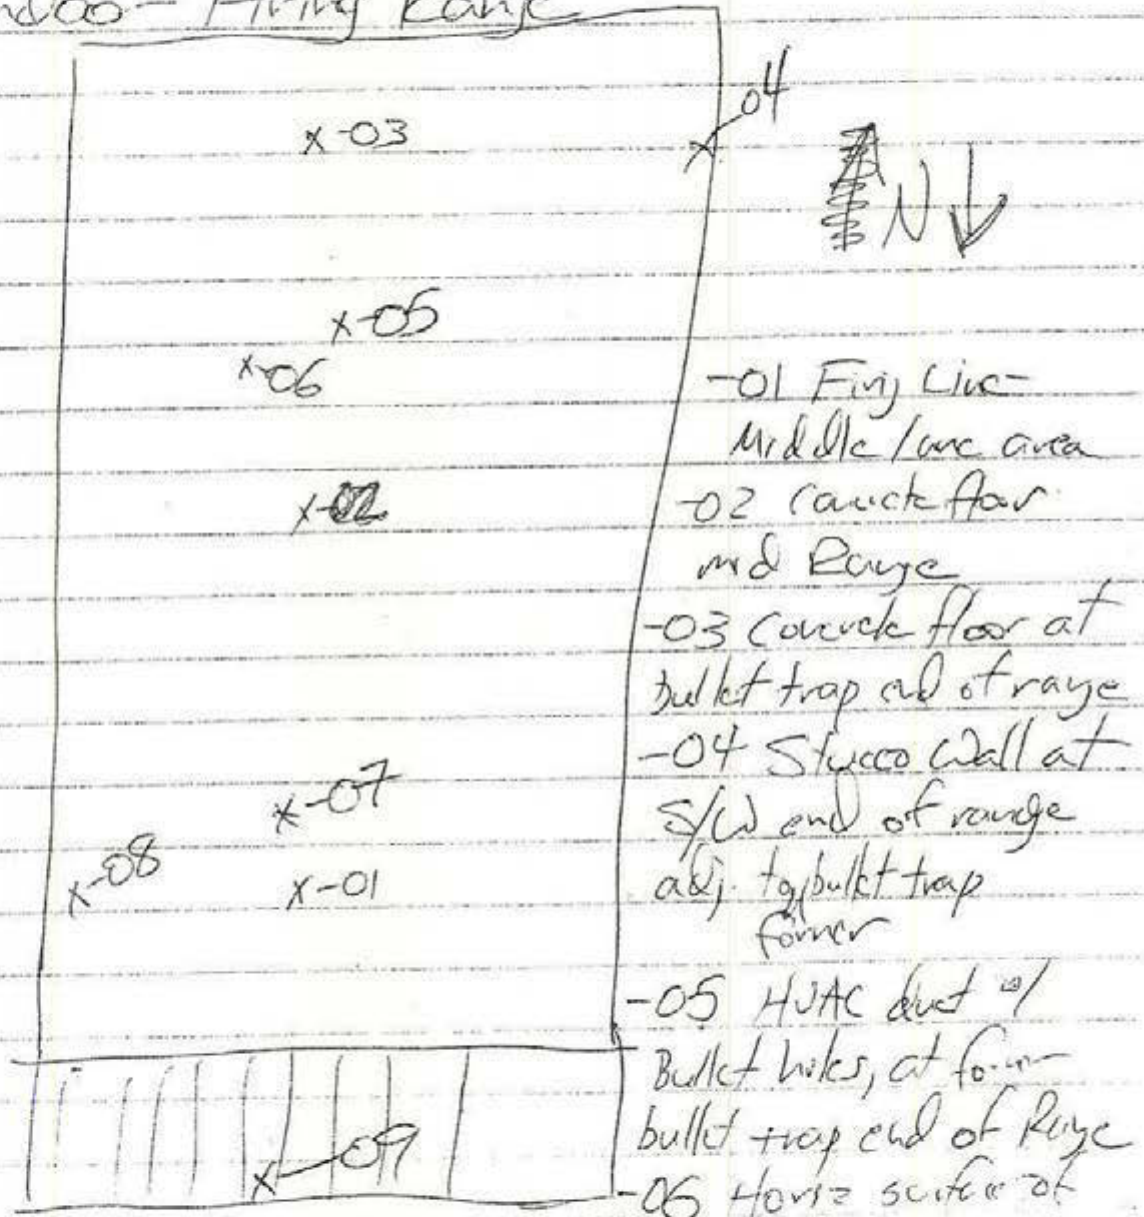 Indoor Firing Range
04
x-03
N
x-05
x-06
-01 Firing Line-
Middle lane area
x-02
-02 Concrete floor
mid Range
-03 Concrete floor at
bullet trap end of range
-04 Stucco Wall at
S/W end of range
x-07
x-08
x-01
adj. to bullet trap
former
-05 HVAC duct w/
Bullet holes, at former
bullet trap end of Range
x-09
-06 Horiz surface of